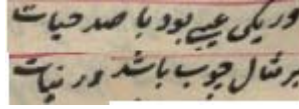 وریکی عیبی بود با صد حیات
بر مثال چوب باشد در نبات